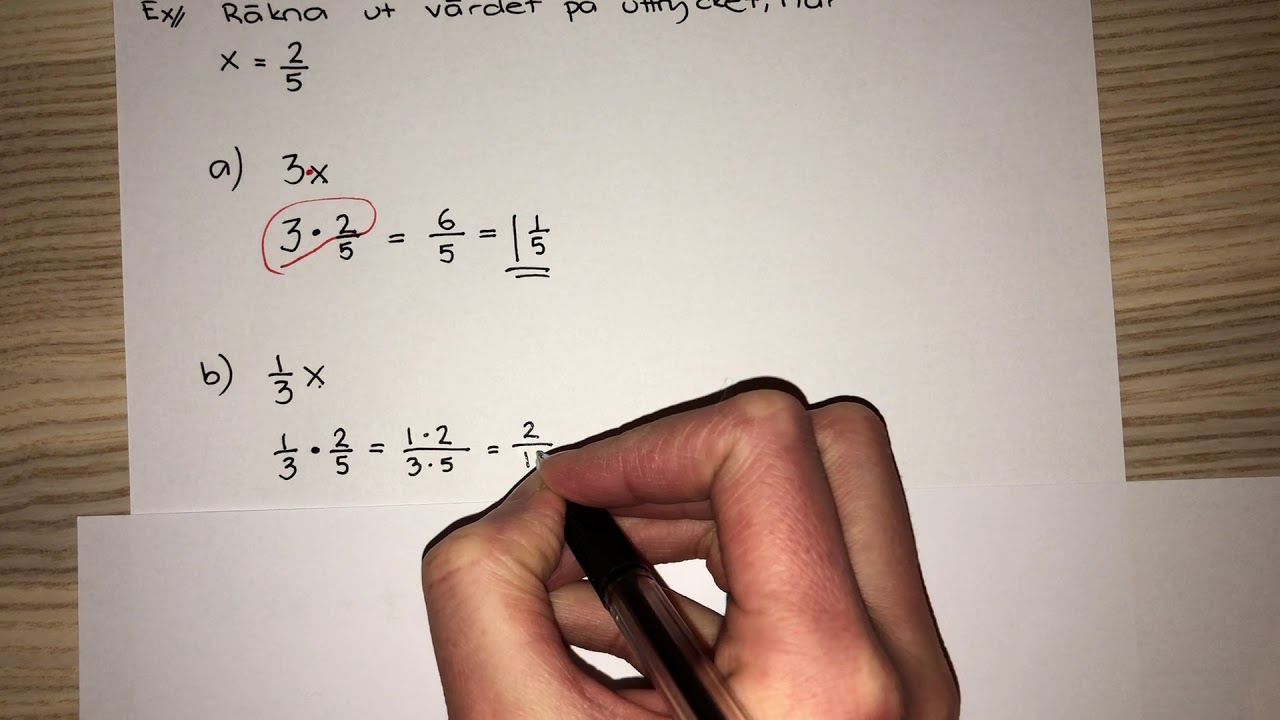 Ex// Räkna ut värdet på uttrycket, när
x = 2/5
a) 3·x
3 · 2/5 = 6/5 = 1 1/5
b) 1/3 x
1/3 · 2/5 = 1·2/3·5 = 2/